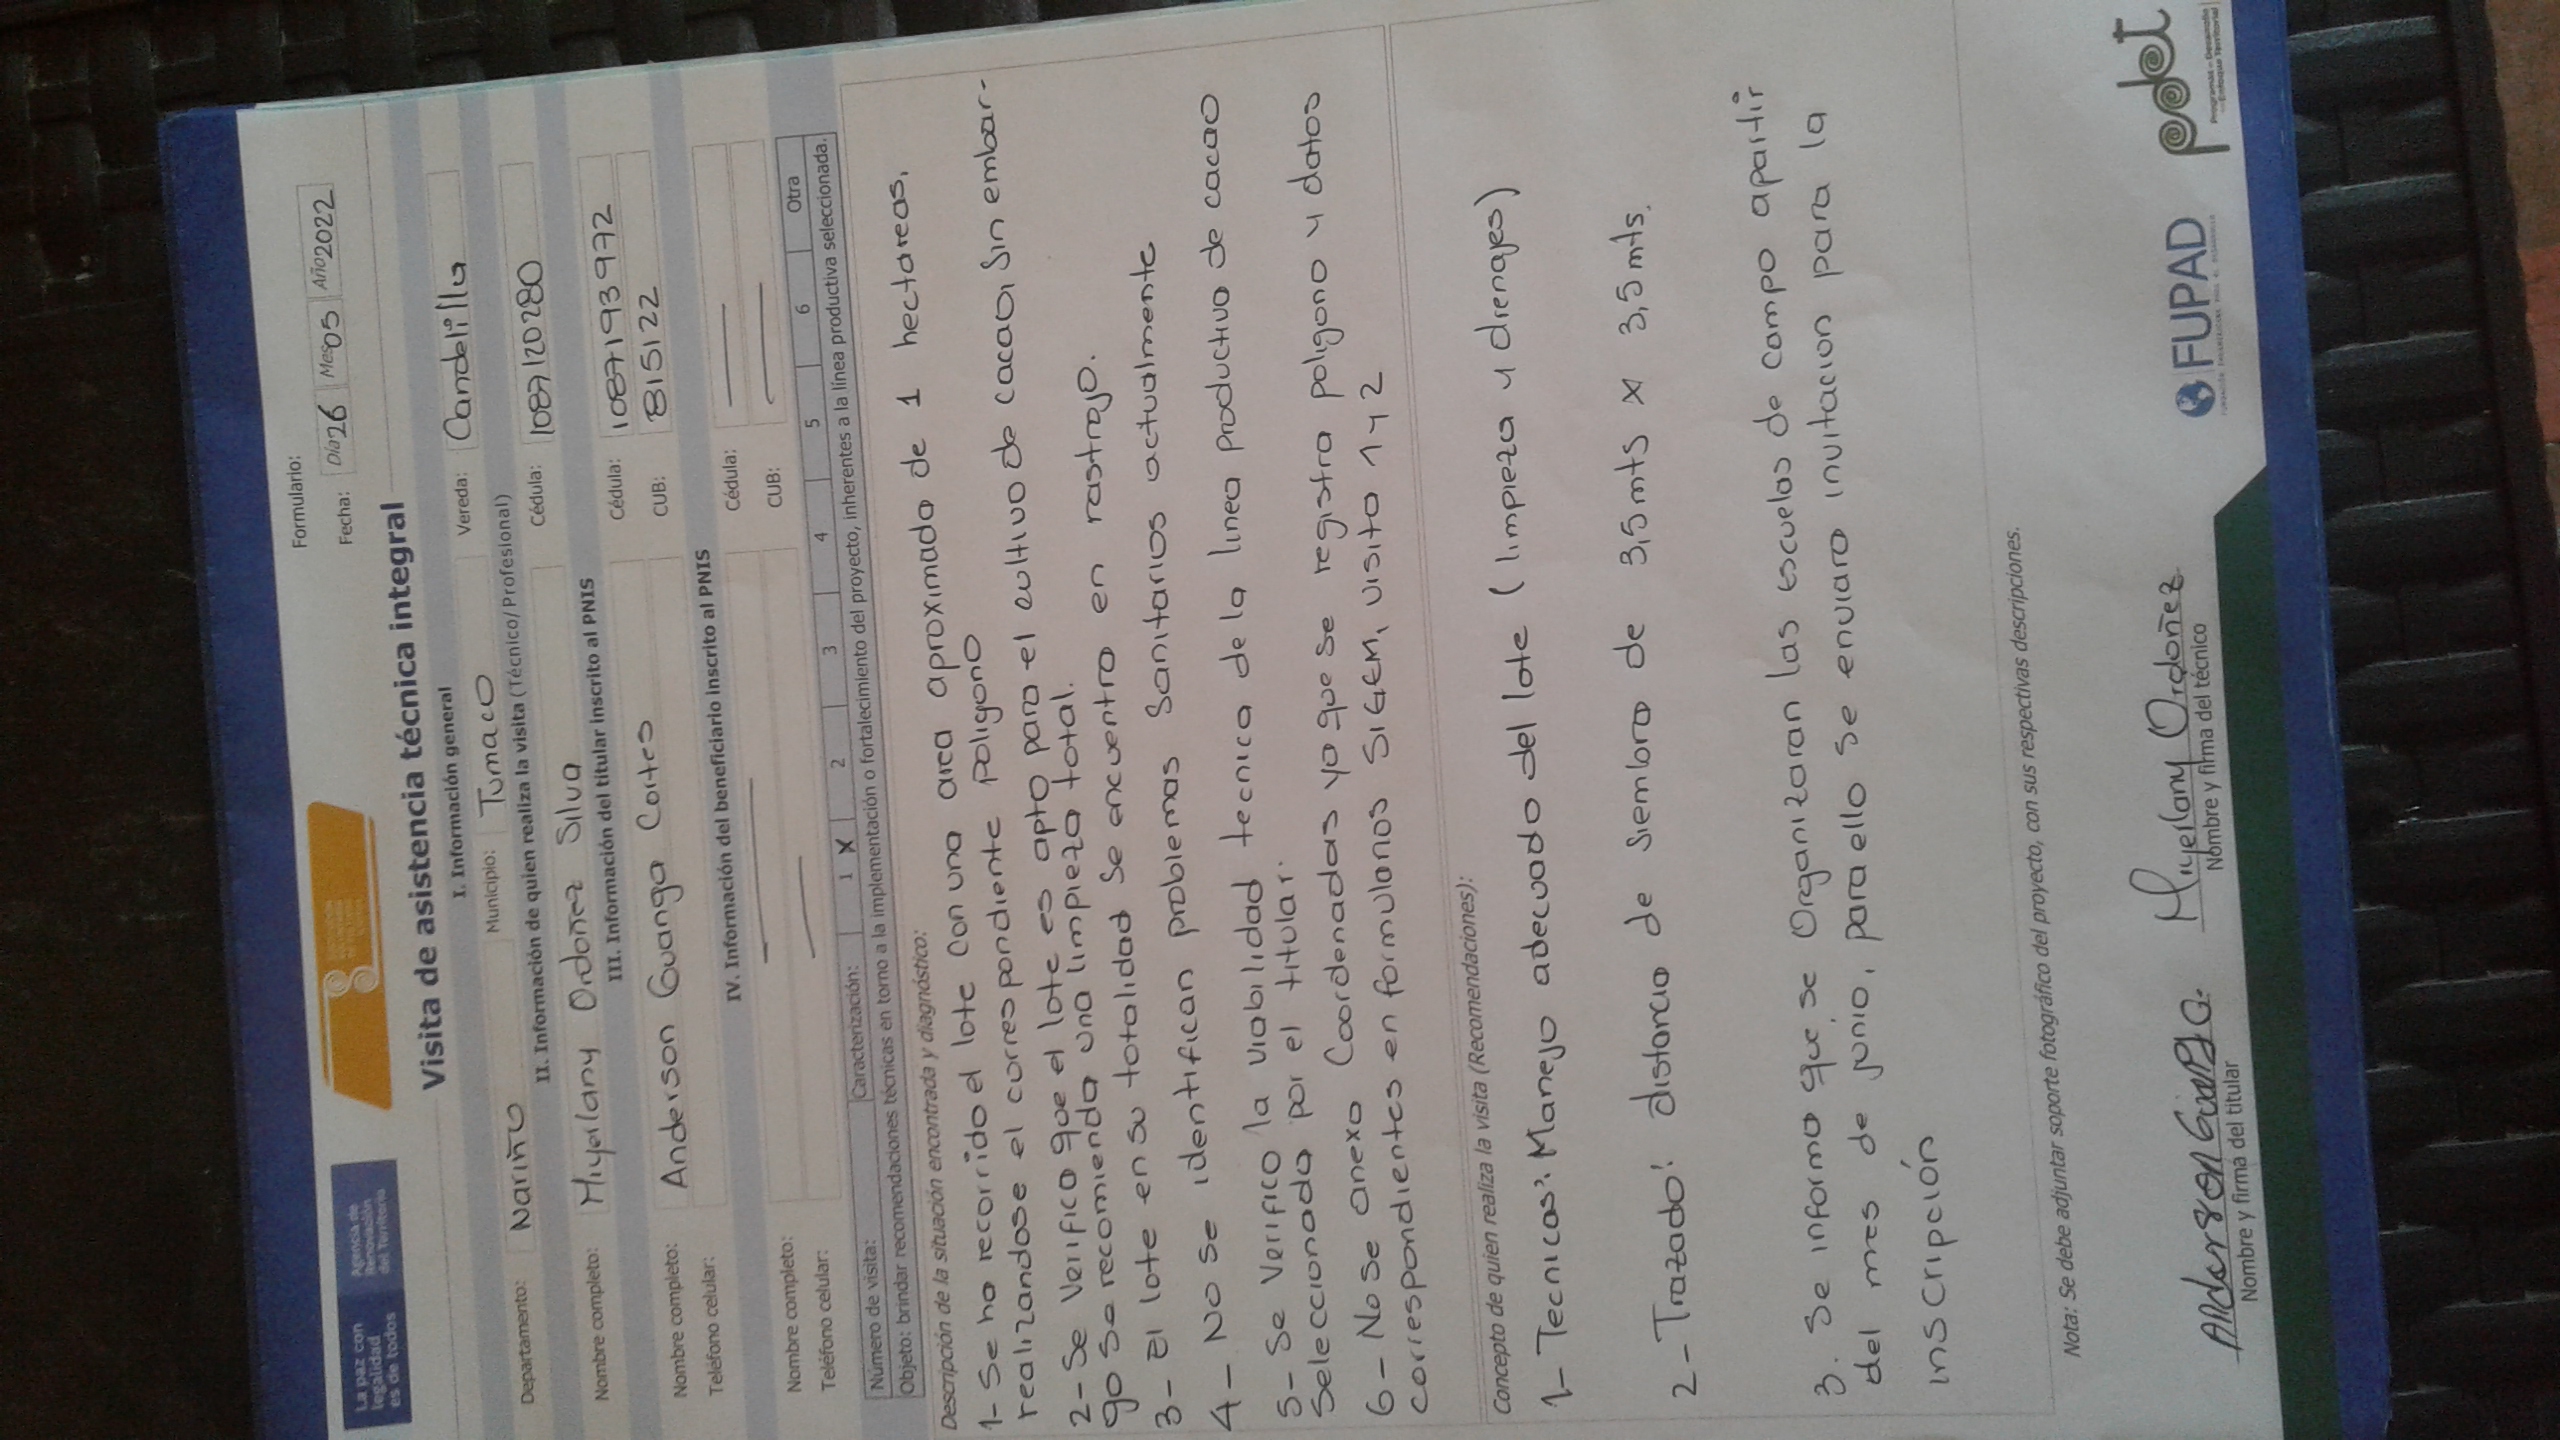 La paz con
legalidad
es de todos
Agencia de
Renovación
del Territorio
Formulario:
Fecha: Día 26 Mes 05 Año 2022
Visita de asistencia técnica integral
I. Información general
Departamento: Nariño Municipio: Tumaco Vereda: Candelilla
II. Información de quien realiza la visita (Técnico/Profesional)
Nombre completo: Miyerlany Ordoñez Silva Cédula: 1087120280
III. Información del titular inscrito al PNIS
Nombre completo: Anderson Guanga Cortes Cédula: 1087193972
Teléfono celular: CUB: 815122
IV. Información del beneficiario inscrito al PNIS
Nombre completo: Cédula:
Teléfono celular: CUB:
Número de visita: Caracterización: 1 X 2 3 4 5 6 Otra
Objeto: brindar recomendaciones técnicas en torno a la implementación o fortalecimiento del proyecto, inherentes a la línea productiva seleccionada.
Descripción de la situación encontrada y diagnóstico:
1- Se ha recorrido el lote con una area aproximada de 1 hectareas,
realizandose el correspondiente poligono
2- Se Verifico que el lote es apto para el cultivo de cacao, Sin embar-
go se recomienda una limpieza total.
3- El lote en su totalidad se encuentra en rastrojo.
4- No se identifican problemas Sanitarios actualmente
5- Se Verifico la viabilidad tecnica de la linea productiva de cacao
Seleccionada por el titular.
6- No se anexa Coordenadas ya que se registra poligono y datos
correspondientes en formularios SIGEM, visita 1 y 2
Concepto de quien realiza la visita (Recomendaciones):
1- Tecnicas: Manejo adecuado del lote (limpieza y drenajes)
2- Trazado: distancia de siembra de 3,5 mts x 3,5 mts.
3. Se informa que se Organizaran las escuelas de campo apartir
del mes de junio, para ello se enviara invitacion para la
inscripción
Nota: Se debe adjuntar soporte fotográfico del proyecto, con sus respectivas descripciones.
Anderson Guanga. Miyerlany Ordoñez
Nombre y firma del titular Nombre y firma del técnico
FUPAD
pdet
Programas de Desarrollo
con Enfoque Territorial